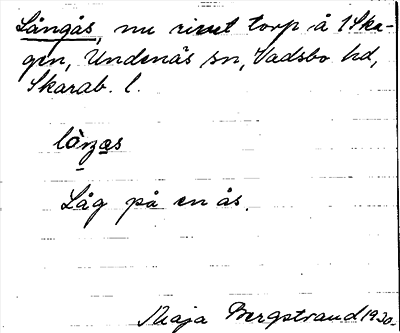 Långås, nu rivet torp å 1 Ska-
gen, Undenäs sn, Vadsbo hd,
Skarab. l.
Låg på en ås.
Maja Bergstrand 1930.